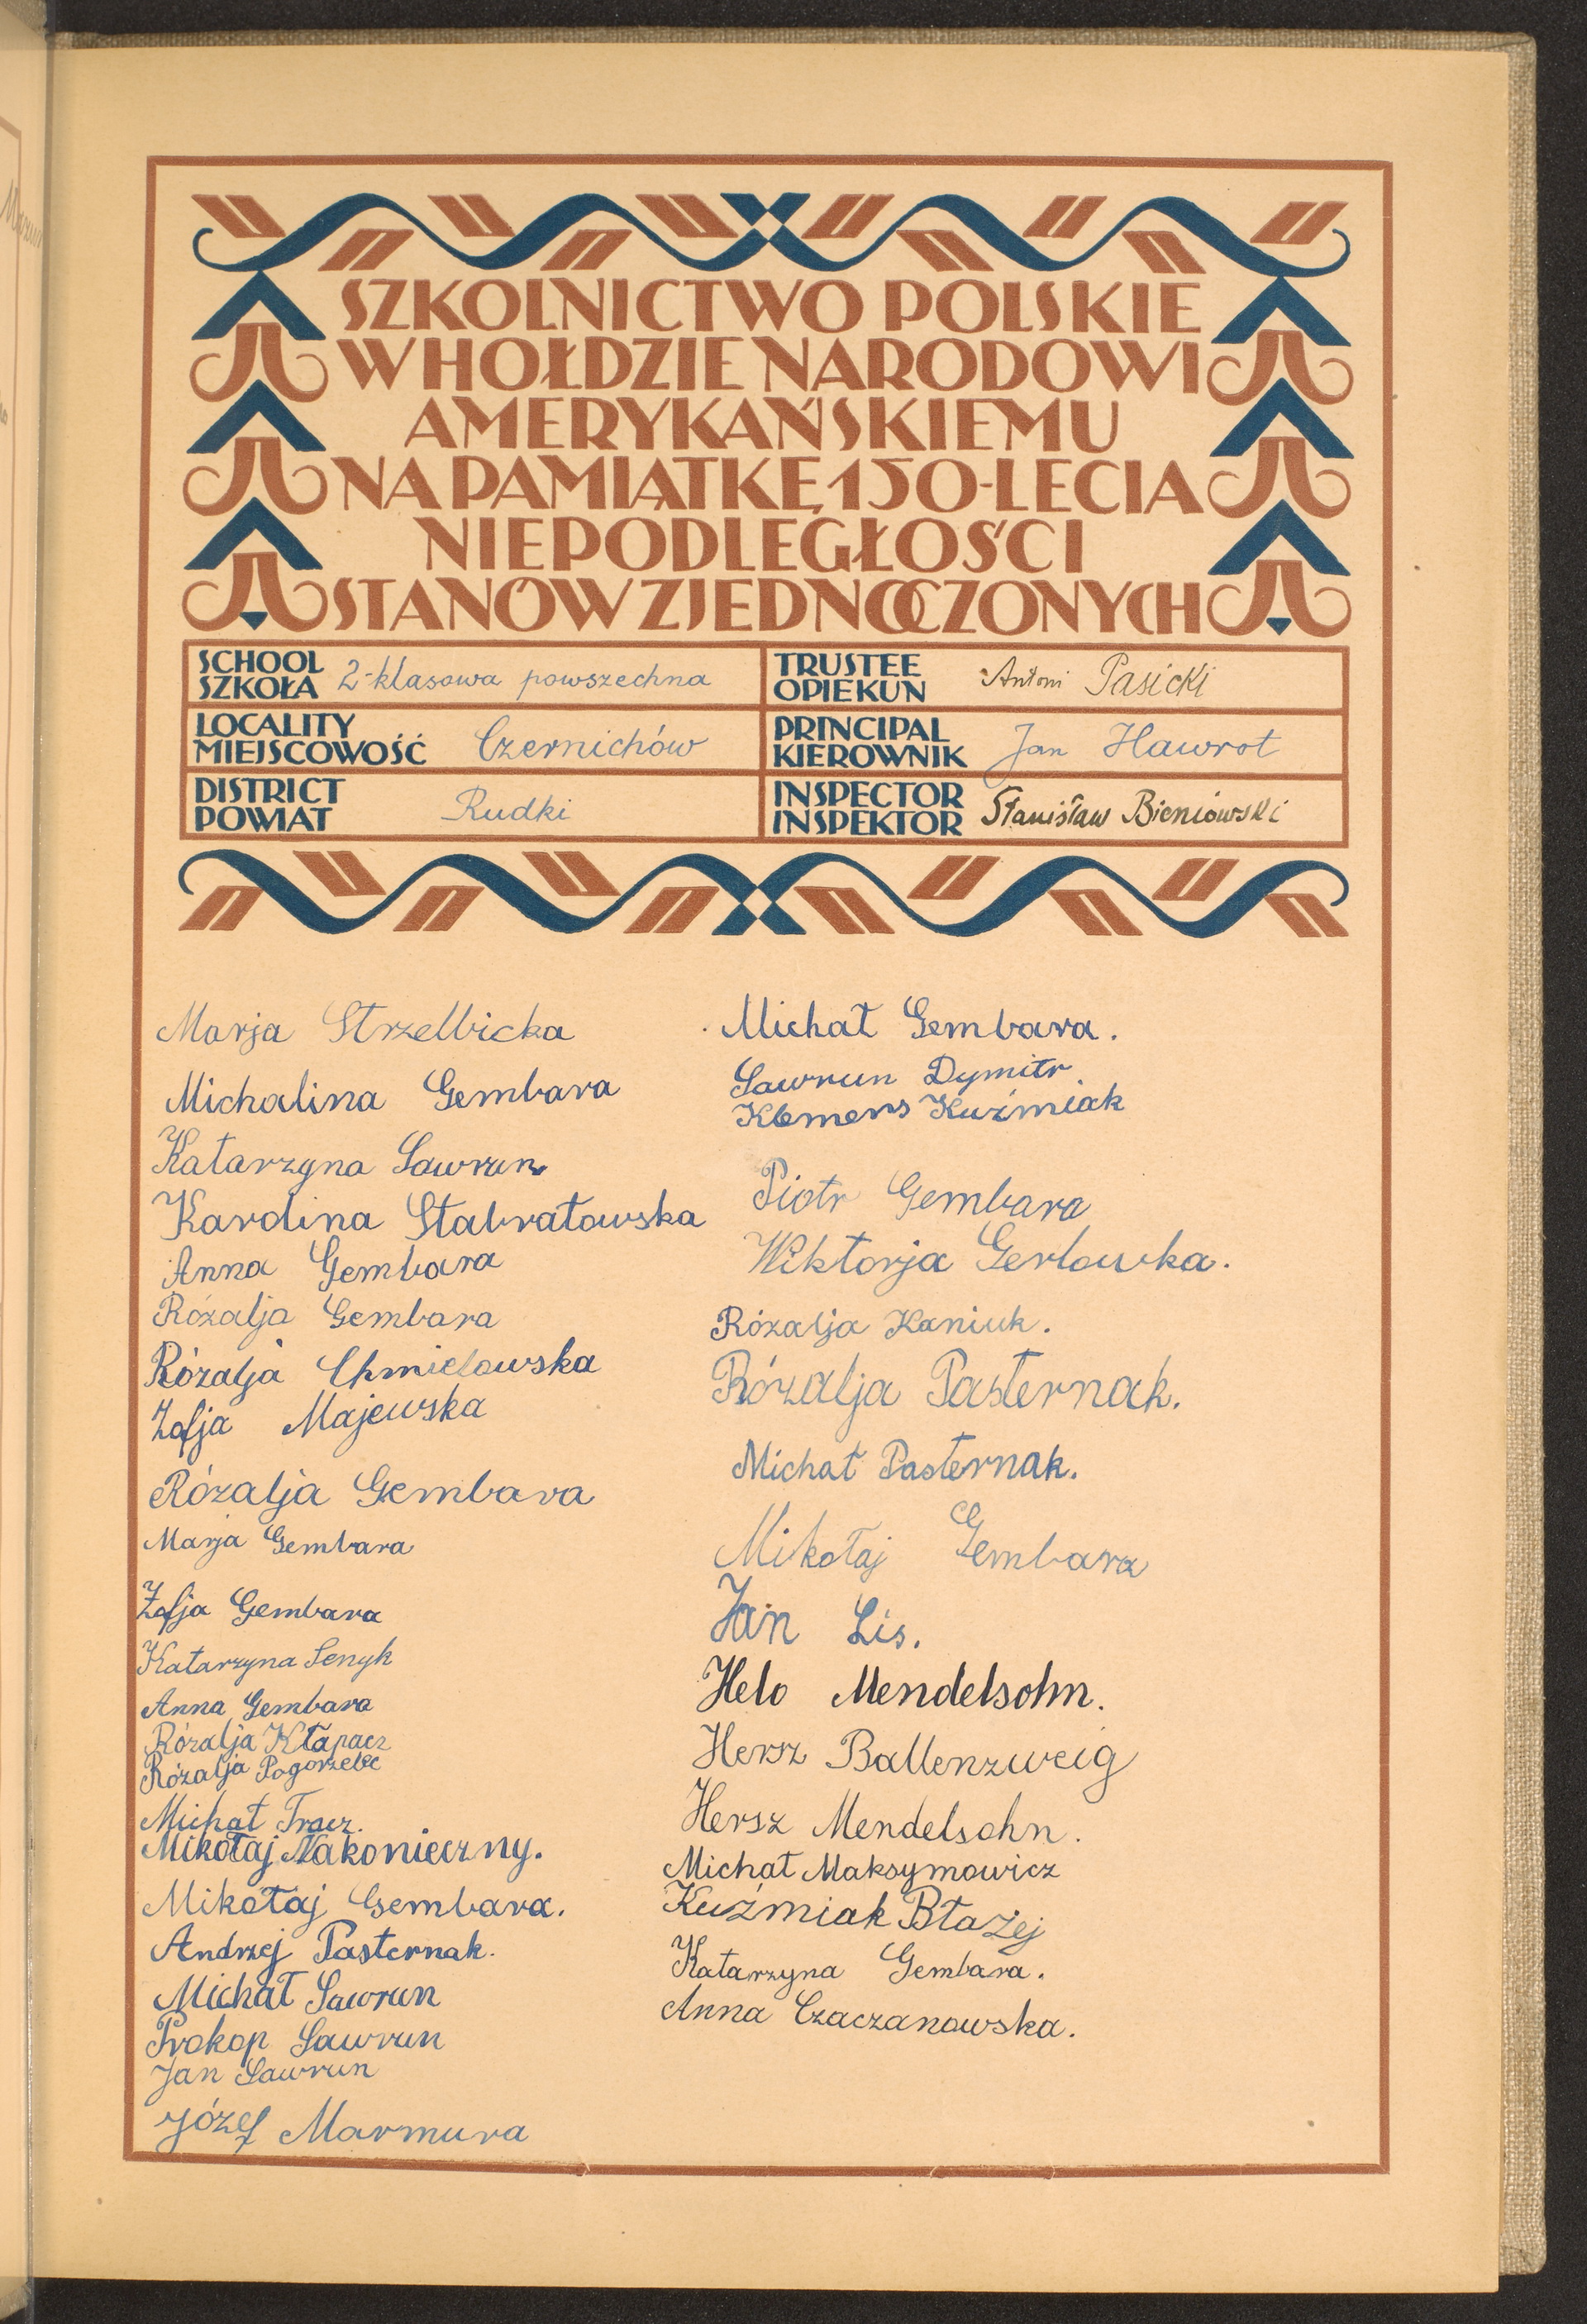 SZKOLNICTWO POLSKIE
W HOŁDZIE NARODOWI
AMERYKAŃSKIEMU
NA PAMIĄTKĘ 150-LECIA
NIEPODLEGŁOŚCI
STANÓW ZJEDNOCZONYCH
SCHOOL
SZKOŁA 2-klasowa powszechna
TRUSTEE
OPIEKUN Antoni Pasicki
LOCALITY
MIEJSCOWOŚĆ Czernichów
PRINCIPAL
KIEROWNIK Jan Hawrot
DISTRICT
POWIAT Rudki
INSPECTOR
INSPEKTOR Stanisław Bieniowski
Marja Strzelbicka
Michalina Gembara
Katarzyna Ławrun
Karolina Stabratowska
Anna Gembara
Rozalja Gembara
Rózalja Chmielowska
Zofja Majewska
Rózalja Gembara
Marja Gembara
Zofja Gembara
Katarzyna Senyk
Anna Gembara
Rózalja Kłapacz
Rózalja Pogorzelec
Michał Tracz.
Mikołaj Nakonieczny.
Mikołaj Gembara.
Andrzej Pasternak.
Michał Ławrun
Prokop Ławrun
Jan Ławrun
Józef Marmura
Michał Gembara.
Ławrun Dymitr
Klemens Kuźmiak
Piotr Gembara
Wiktorja Gerlowka.
Rózalja Kaniuk.
Rózalja Pasternak.
Michał Pasternak.
Mikołaj Gembara
Jan Lis.
Helo Mendelsohn.
Hersz Ballenzweig
Hersz Mendelsohn.
Michał Maksymowicz
Kuźmiak Błażej
Katarzyna Gembara.
Anna Czaczanowska.